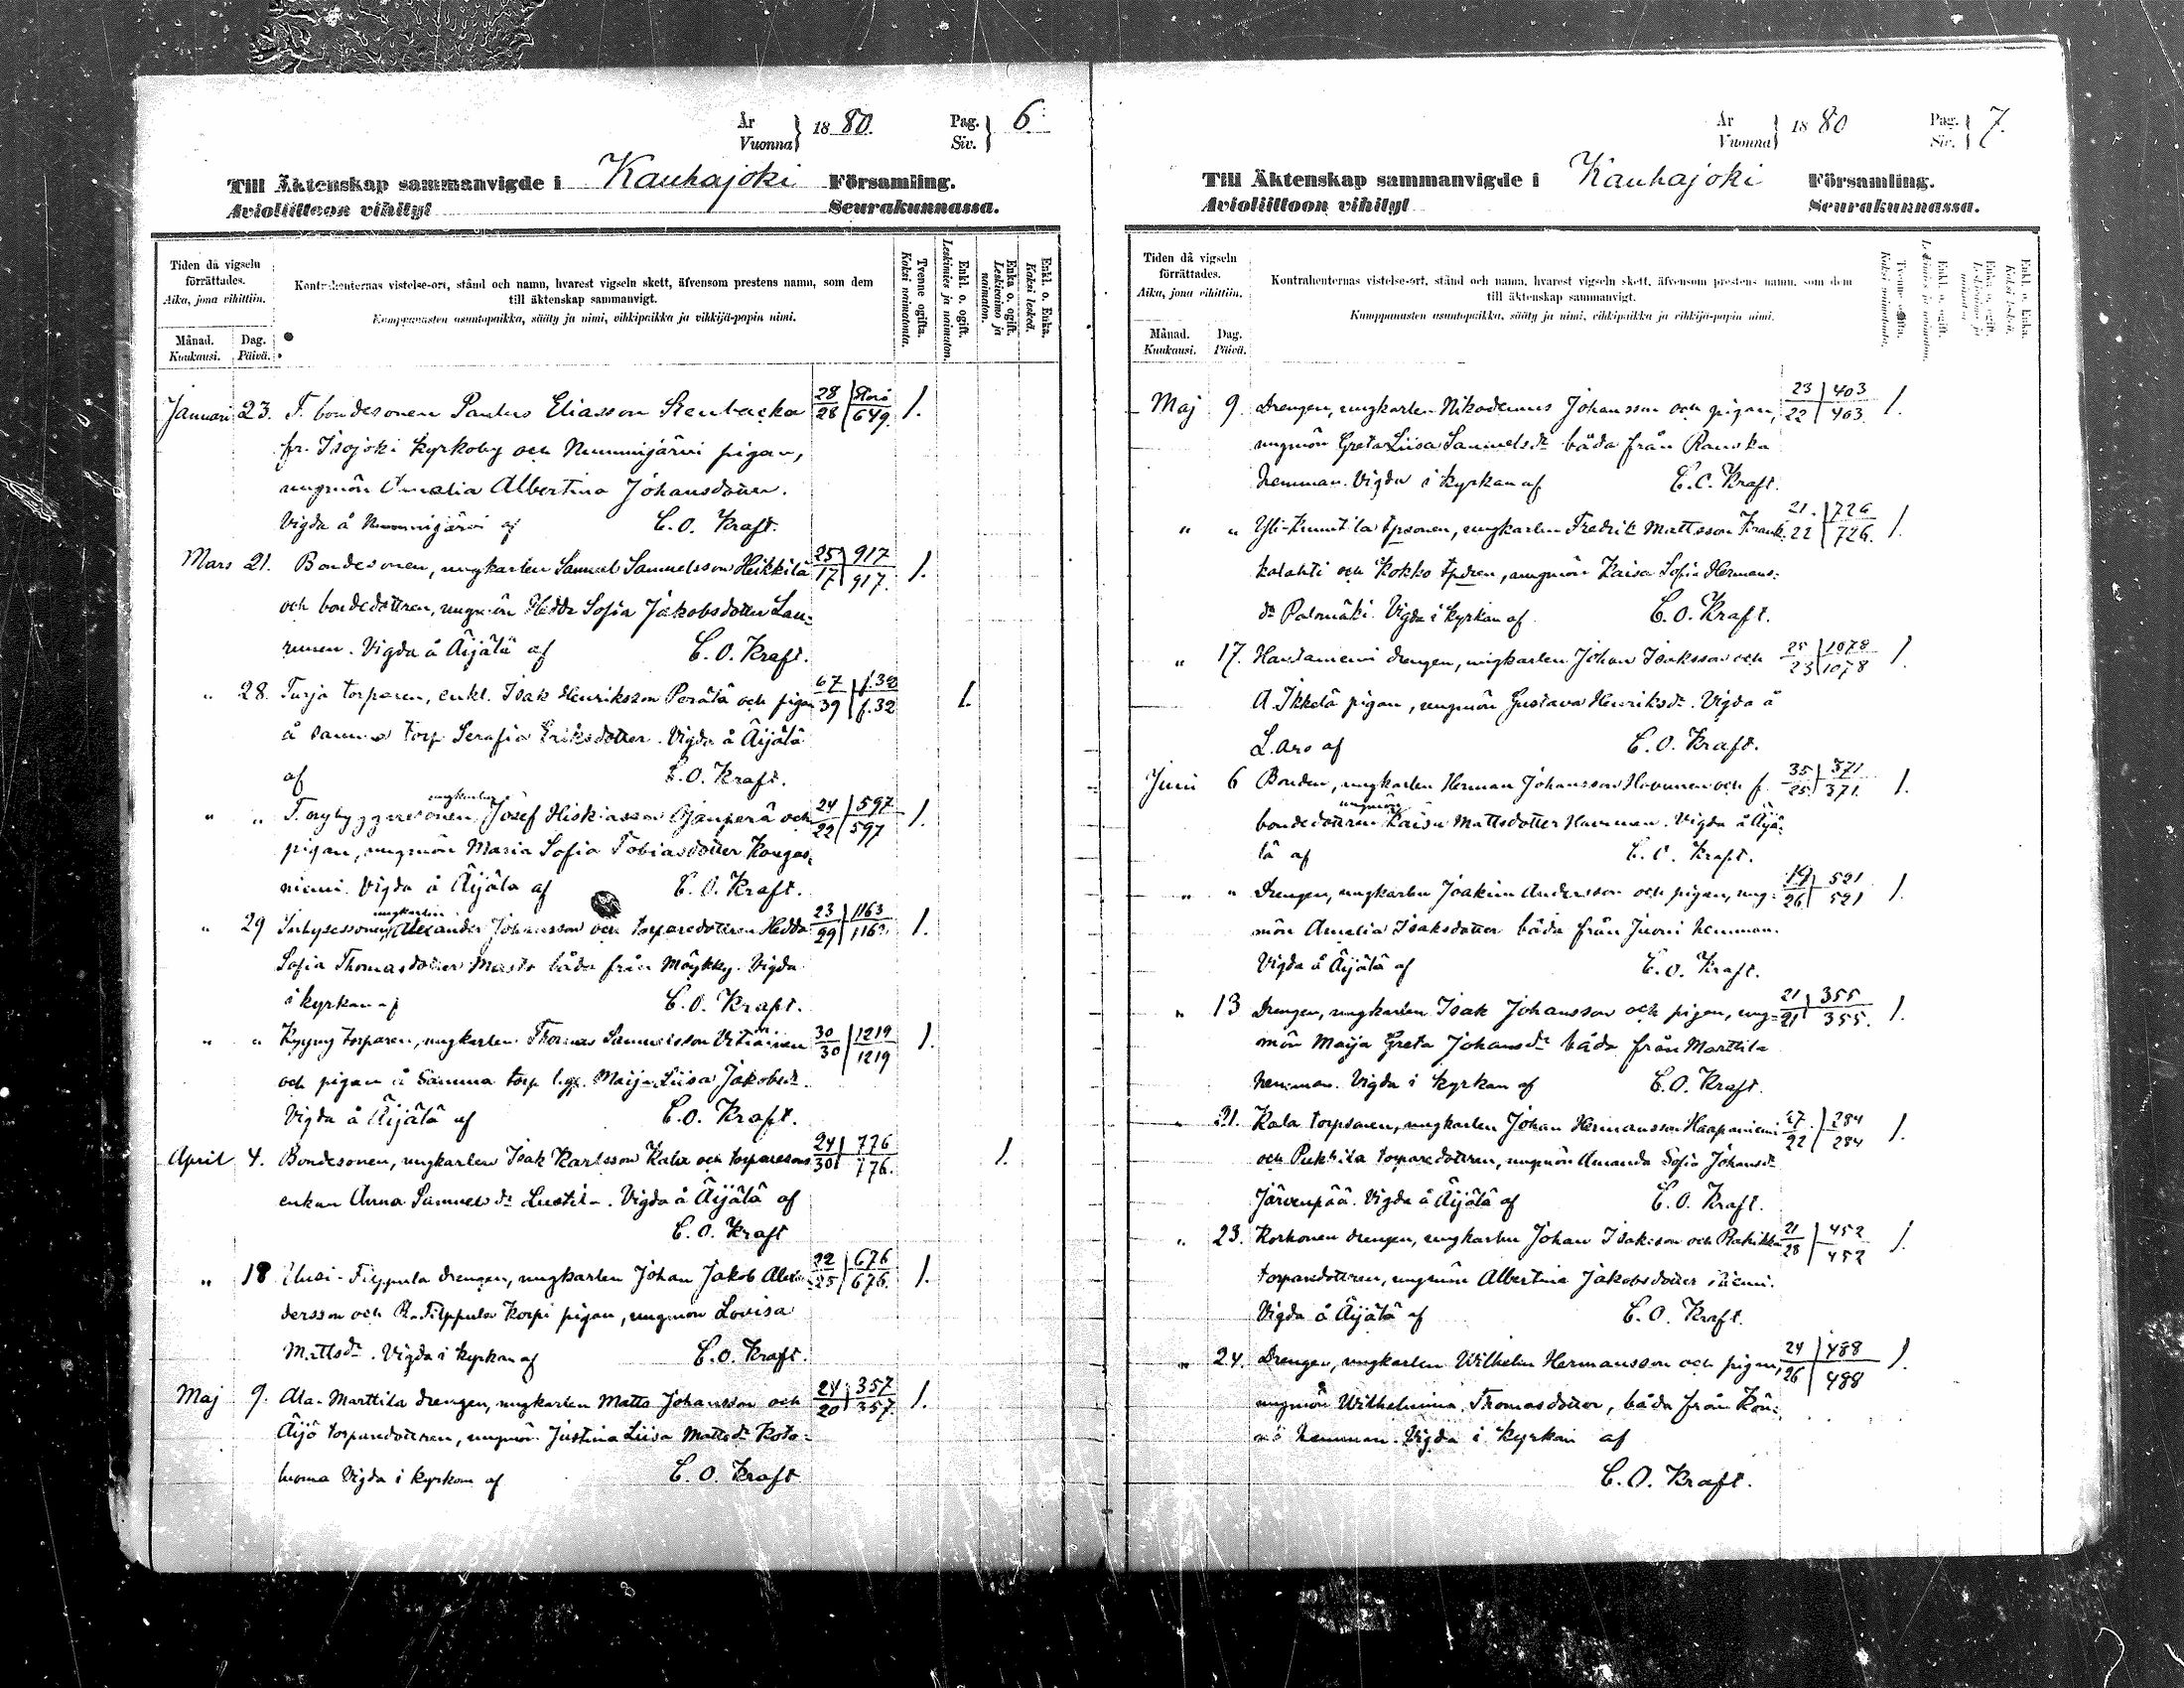 År
Vuonna } 1880. Pag.
Siv. } 6.
Till Äktenskap sammanvigde i Kauhajoki Församling.
Avioliittoon vihityt Seurakunnassa.
Tiden då vigseln
förrättades.
Aika, jona vihittiin.
Månad.
Kuukausi.
Dag.
Päivä.
Kontrahenternas vistelse-ort, stånd och namn, hvarest vigseln skett, äfvensom prestens namn, som dem
till äktenskap sammanvigt.
Kumppanusten asuntopaikka, sääty ja nimi, vihkipaikka ja vihkijä-papin nimi.
Tvenne ogifta.
Kaksi naimatonta.
Enkl. o. ogift.
Leskimies ja naimaton.
Enka o. ogift.
Leskivaimo ja
naimaton.
Enkl. o. Enka.
Kaksi leskeä.
Januari 23. F. bondesonen Paulus Eliasson Stenbacka 28 Storå 1.
28 649.
fr. Isojoki kyrkoby och Nummijärvi pigan,
ungmön Amalia Albertina Johansdotter.
Vigda å Nummijärvi af C. O. Kraft.
Mars 21. Bondesonen, ungkarlen Samuel Samuelsson Heikkilä 25 917 1.
17 917.
och bondedottren, ungmön Hedda Sofia Jakobsdotter Lau-
rinen. Vigda å Äijälä af C. O. Kraft.
" 28. Turja torparen, enkl. Isak Henriksson Perälä och pigan 67 f.32 1.
39 f.32
å samma torp Serafia Eriksdotter. Vigda å Äijälä
af C. O. Kraft.
ungkarlen
" " F. nybyggaresonen, Josef Hiskiasson Ojanperä och 24 597 1.
22 597
pigan, ungmön Maria Sofia Tobiasdotter Kangas-
niemi. Vigda å Äijälä af C. O. Kraft.
ungkarlen
" 29 Inhysessonen, Alexander Johansson och torparedottren Hedda 23 1163 1.
29 1163
Sofia Thomasdotter Masto båda från Möykky. Vigda
i kyrkan af C. O. Kraft.
" " Kyyny torparen, ungkarlen Thomas Samuelsson 30 1219 1.
30 1219
och pigan å samma torp Maija Liisa Jakobsdr.
Vigda å Äijälä af C. O. Kraft.
April 4. Bondesonen, ungkarlen Isak Karlsson Kala och torparesons 24 776 1.
30 776.
enkan Anna Samuelsdr Lustila. Vigda å Äijälä af
C. O. Kraft
" 18 Uusi-Filppula drengen, ungkarlen Johan Jakob Alexan- 22 676 1.
25 676.
dersson och R. Filppula Korpi pigan, ungmön Lovisa
Mattsdr. Vigda i kyrkan af C. O. Kraft.
Maj 9. Ala-Marttila drengen, ungkarlen Matts Johansson och 24 357 1.
20 357.
Äijö torparedottren, ungmön Justina Liisa Mattsdr Koto-
luoma Vigda i kyrkan af C. O. Kraft
År
Vuonna } 1880 Pag.
Siv. } 7.
Till Äktenskap sammanvigde i Kauhajoki Församling.
Avioliittoon vihityt Seurakunnassa.
Tiden då vigseln
förrättades.
Aika, jona vihittiin.
Månad.
Kuukausi.
Dag.
Päivä.
Kontrahenternas vistelse-ort, stånd och namn, hvarest vigseln skett, äfvensom prestens namn, som dem
till äktenskap sammanvigt.
Kumppanusten asuntopaikka, sääty ja nimi, vihkipaikka ja vihkijä-papin nimi.
Maj 9. Drengen, ungkarlen Nikodemus Johansson och pigan, 23 403 1.
22 403.
ungmön Greta Liisa Samuelsdr båda från Ranska
hemman. Vigda i kyrkan af C. O. Kraft.
" " Yli-Knuutila tpsonen, ungkarlen Fredrik Mattsson 21. 726 1.
22 726.
kalahti och Kokko tpdren, ungmön Kaisa Sofia Hermans-
dr Palomäki. Vigda i kyrkan af C. O. Kraft.
" 17. Hautaniemi drengen, ungkarlen Johan Isaksson och 25 1078 1.
23 1078
A. Ikkelä pigan, ungmön Gustava Henriksdr. Vigda å
L. Aro af C. O. Kraft.
Juni 6 Bonden, ungkarlen Herman Johansson Havunen och f. 35 371 1.
25. 371.
ungmön
bondedottren Kaisa Mattsdotter Havunen. Vigda å Äijä-
lä af C. O. Kraft.
" " Drengen, ungkarlen Joakim Andersson och pigan, ung- 19 521 1.
26 521
mön Amalia Isaksdotter båda från Juoni hemman.
Vigda å Äijälä af C. O. Kraft.
" 13 Drengen, ungkarlen Isak Johansson och pigan, ung- 21 355 1.
21 355.
mön Maija Greta Johansdr båda från Marttila
hemman. Vigda i kyrkan af C. O. Kraft.
" Kala torpsonen, ungkarlen Johan Hermansson Haapaniemi 27. 284 1.
22 284
och Pukkila torparedottren, ungmön Amanda Sofia Johansdr
Järvenpää. Vigda å Äijälä af C. O. Kraft.
" 23. Korhonen drengen, ungkarlen Johan Isaksson och Rahikka 21 452 1.
28 452
torparedottren, ungmön Albertina Jakobsdotter Niemi.
Vigda å Äijälä af C. O. Kraft.
" 24. Drengen, ungkarlen Wilhelm Hermansson och pigan, 24 488 1.
26 488
ungmön Wilhelmina Thomasdotter, båda från Kön-
nö hemman. Vigda i kyrkan af
C. O. Kraft.